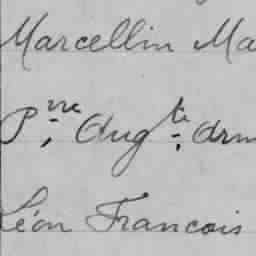 Marcellin Ma
Pre Augte Arm
Léon Francois